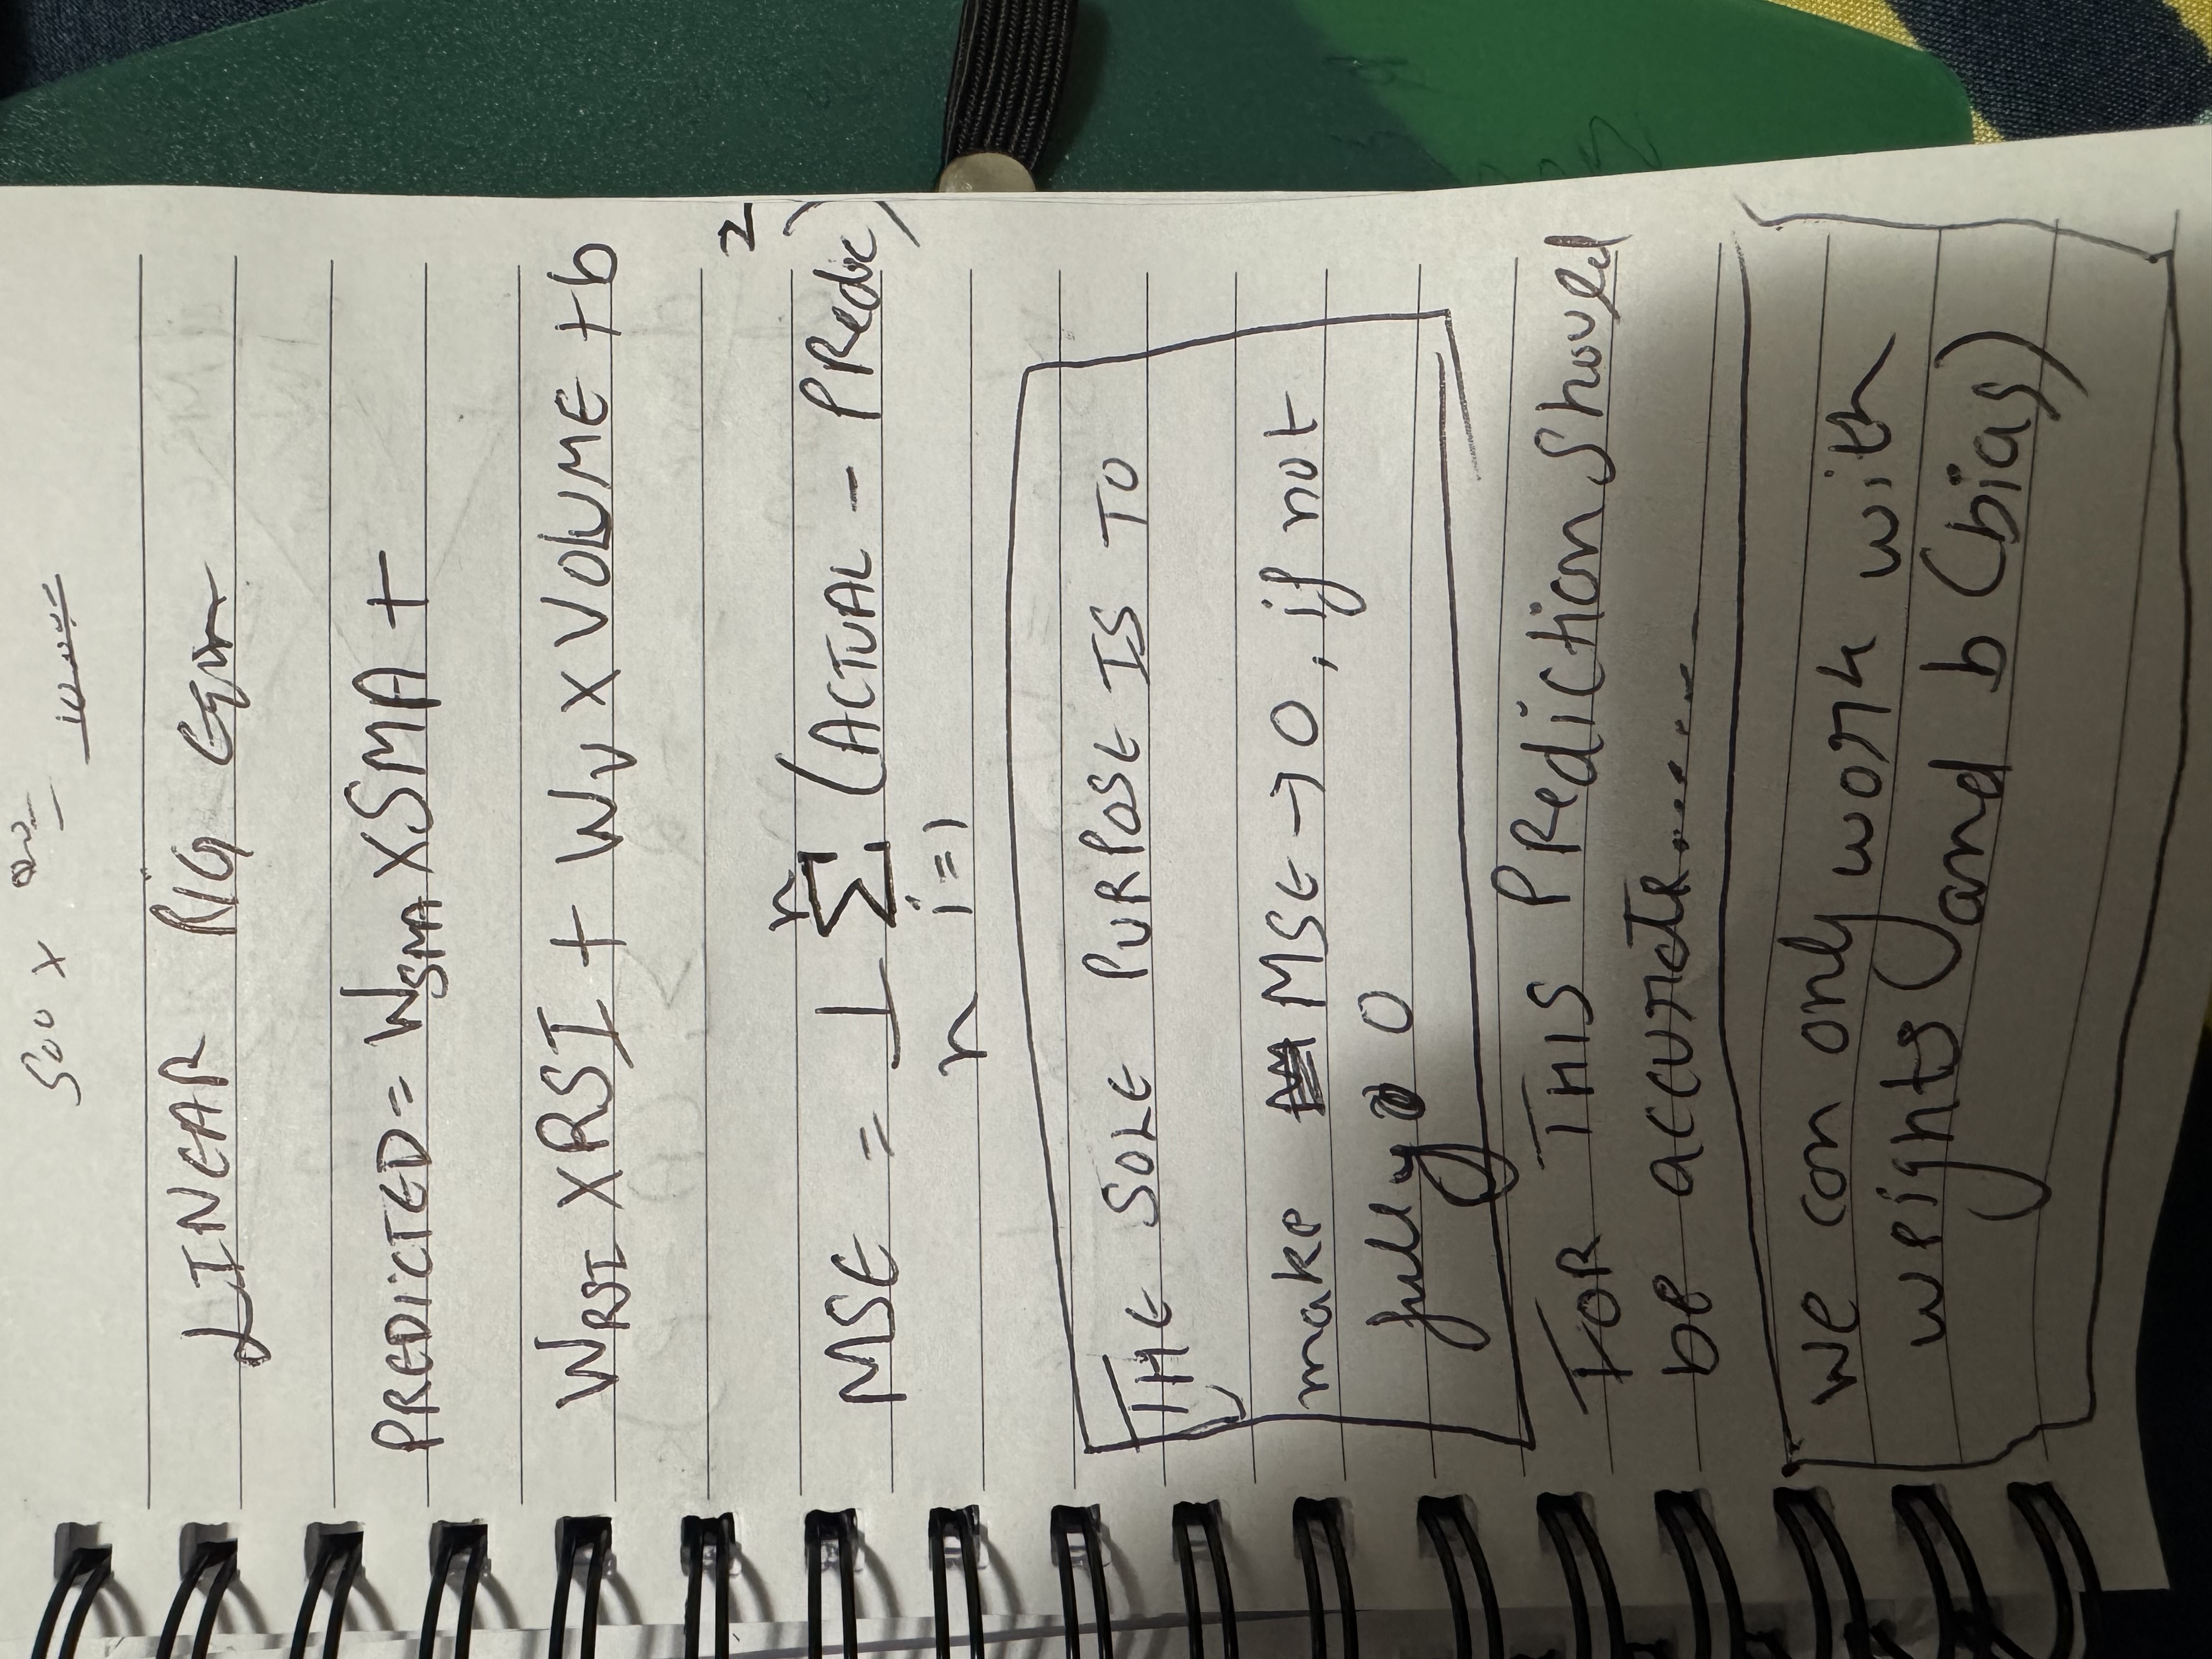 500 x
LINEAR RIG Eqn
PREDICTED = W_SMA X SMA +
W_RSI X RSI + W_V X VOLUME + b
MSE = 1/n Σ_{i=1}^{n} (ACTUAL - PRedic)²
THE SOLE PURPOSE IS TO
make MSE → 0, if not
fully 0
FOR THIS PRediction Should
be accurate......
We can only work with
weights and b (bias)